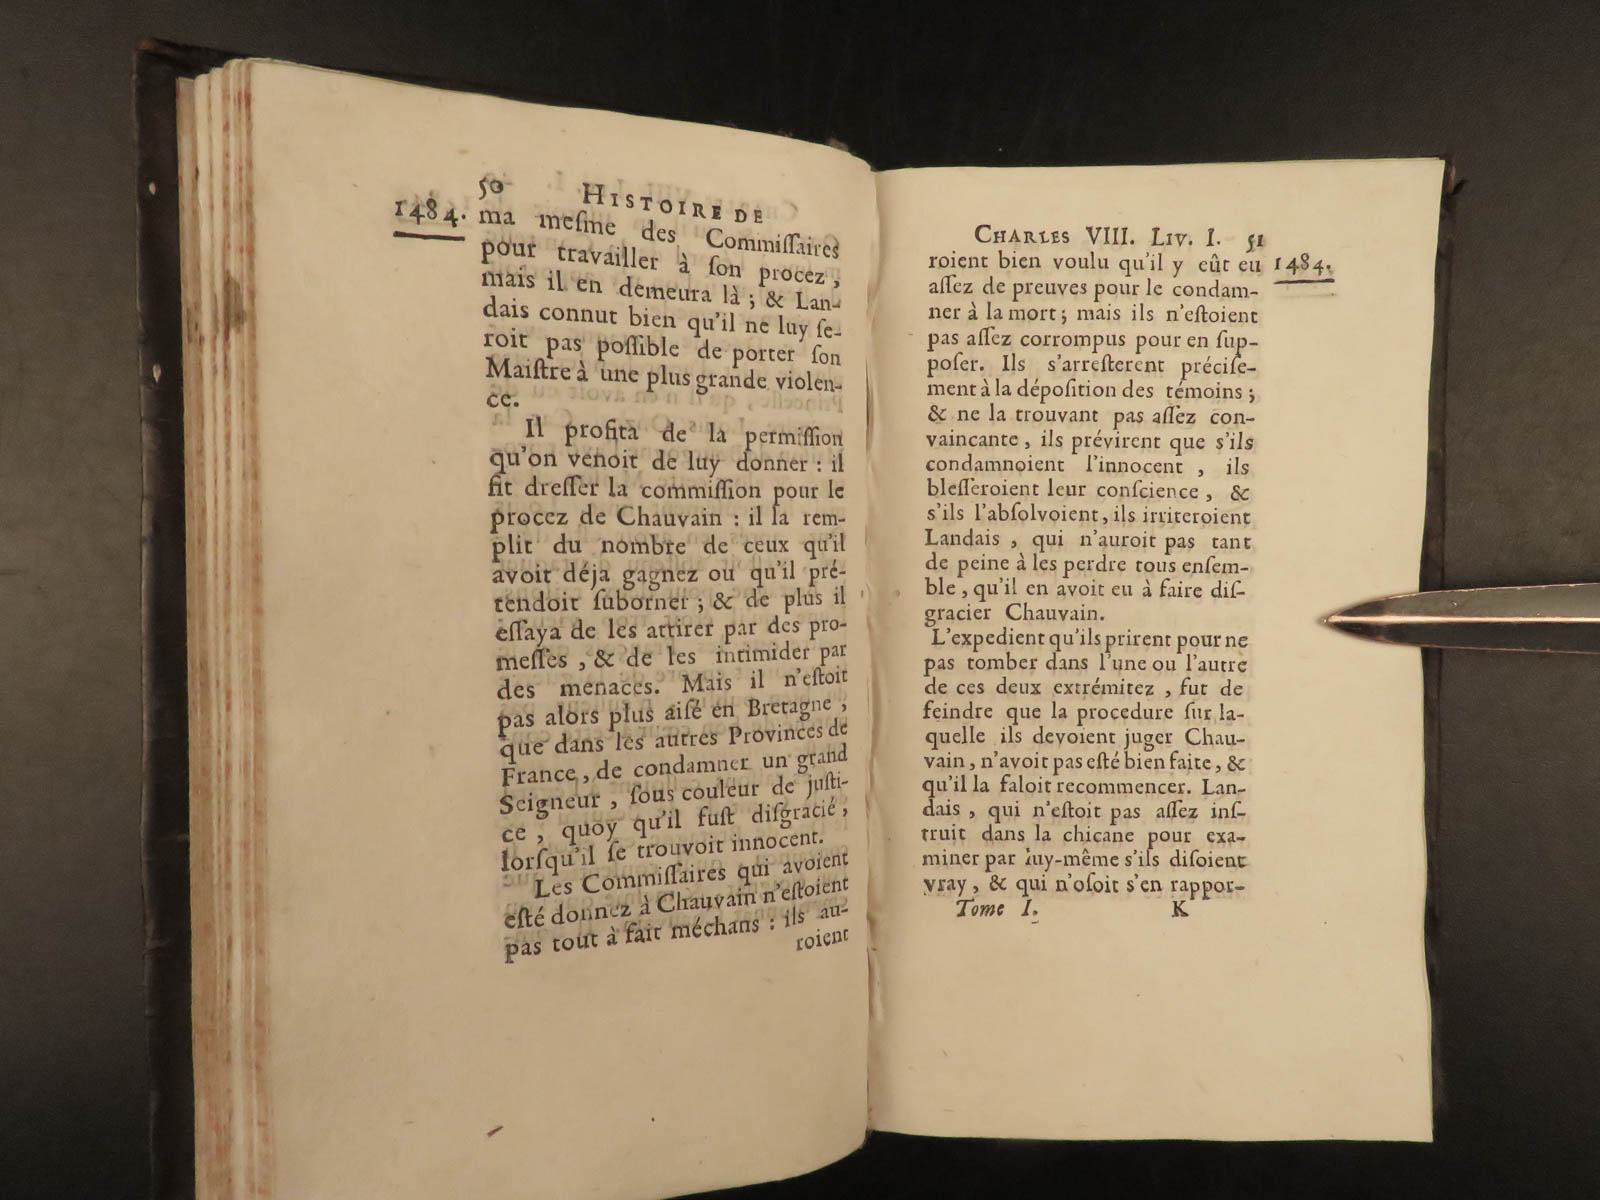 50 HISTOIRE DE
1484.
ma meſme des Commiſſaires
pour travailler à ſon procez ;
mais il en demeura là ; & Lan-
dais connut bien qu'il ne luy ſe-
roit pas poſſible de porter ſon
Maiſtre à une plus grande violen-
ce.
Il profita de la permiſſion
qu'on venoit de luy donner : il
fit dreſſer la commiſſion pour le
procez de Chauvain : il la rem-
plit du nombre de ceux qu'il
avoit déja gagnez ou qu'il pré-
tendoit ſuborner ; & de plus il
eſſaya de les attirer par des pro-
meſſes , & de les intimider par
des menaces. Mais il n'eſtoit
pas alors plus aiſé en Bretagne ,
que dans les autres Provinces de
France , de condamner un grand
Seigneur , ſous couleur de juſti-
ce , quoy qu'il fuſt diſgracié ,
lorſqu'il ſe trouvoit innocent.
Les Commiſſaires qui avoient
eſté donnez à Chauvain n'eſtoient
pas tout à fait méchans : ils au-
roient
CHARLES VIII. LIV. I. 51
1484.
roient bien voulu qu'il y eût eu
aſſez de preuves pour le condam-
ner à la mort ; mais ils n'eſtoient
pas aſſez corrompus pour en ſup-
poſer. Ils s'arreſterent préciſe-
ment à la dépoſition des témoins ;
& ne la trouvant pas aſſez con-
vaincante , ils prévirent que s'ils
condamnoient l'innocent , ils
bleſſeroient leur conſcience , &
s'ils l'abſolvoient , ils irriteroient
Landais , qui n'auroit pas tant
de peine à les perdre tous enſem-
ble , qu'il en avoit eu à faire diſ-
gracier Chauvain.
L'expedient qu'ils prirent pour ne
pas tomber dans l'une ou l'autre
de ces deux extrémitez , fut de
feindre que la procedure ſur la-
quelle ils devoient juger Chau-
vain , n'avoit pas eſté bien faite , &
qu'il la faloit recommencer. Lan-
dais , qui n'eſtoit pas aſſez inſ-
truit dans la chicane pour exa-
miner par luy-même s'ils diſoient
vray , & qui n'oſoit s'en rappor-
Tome I. K